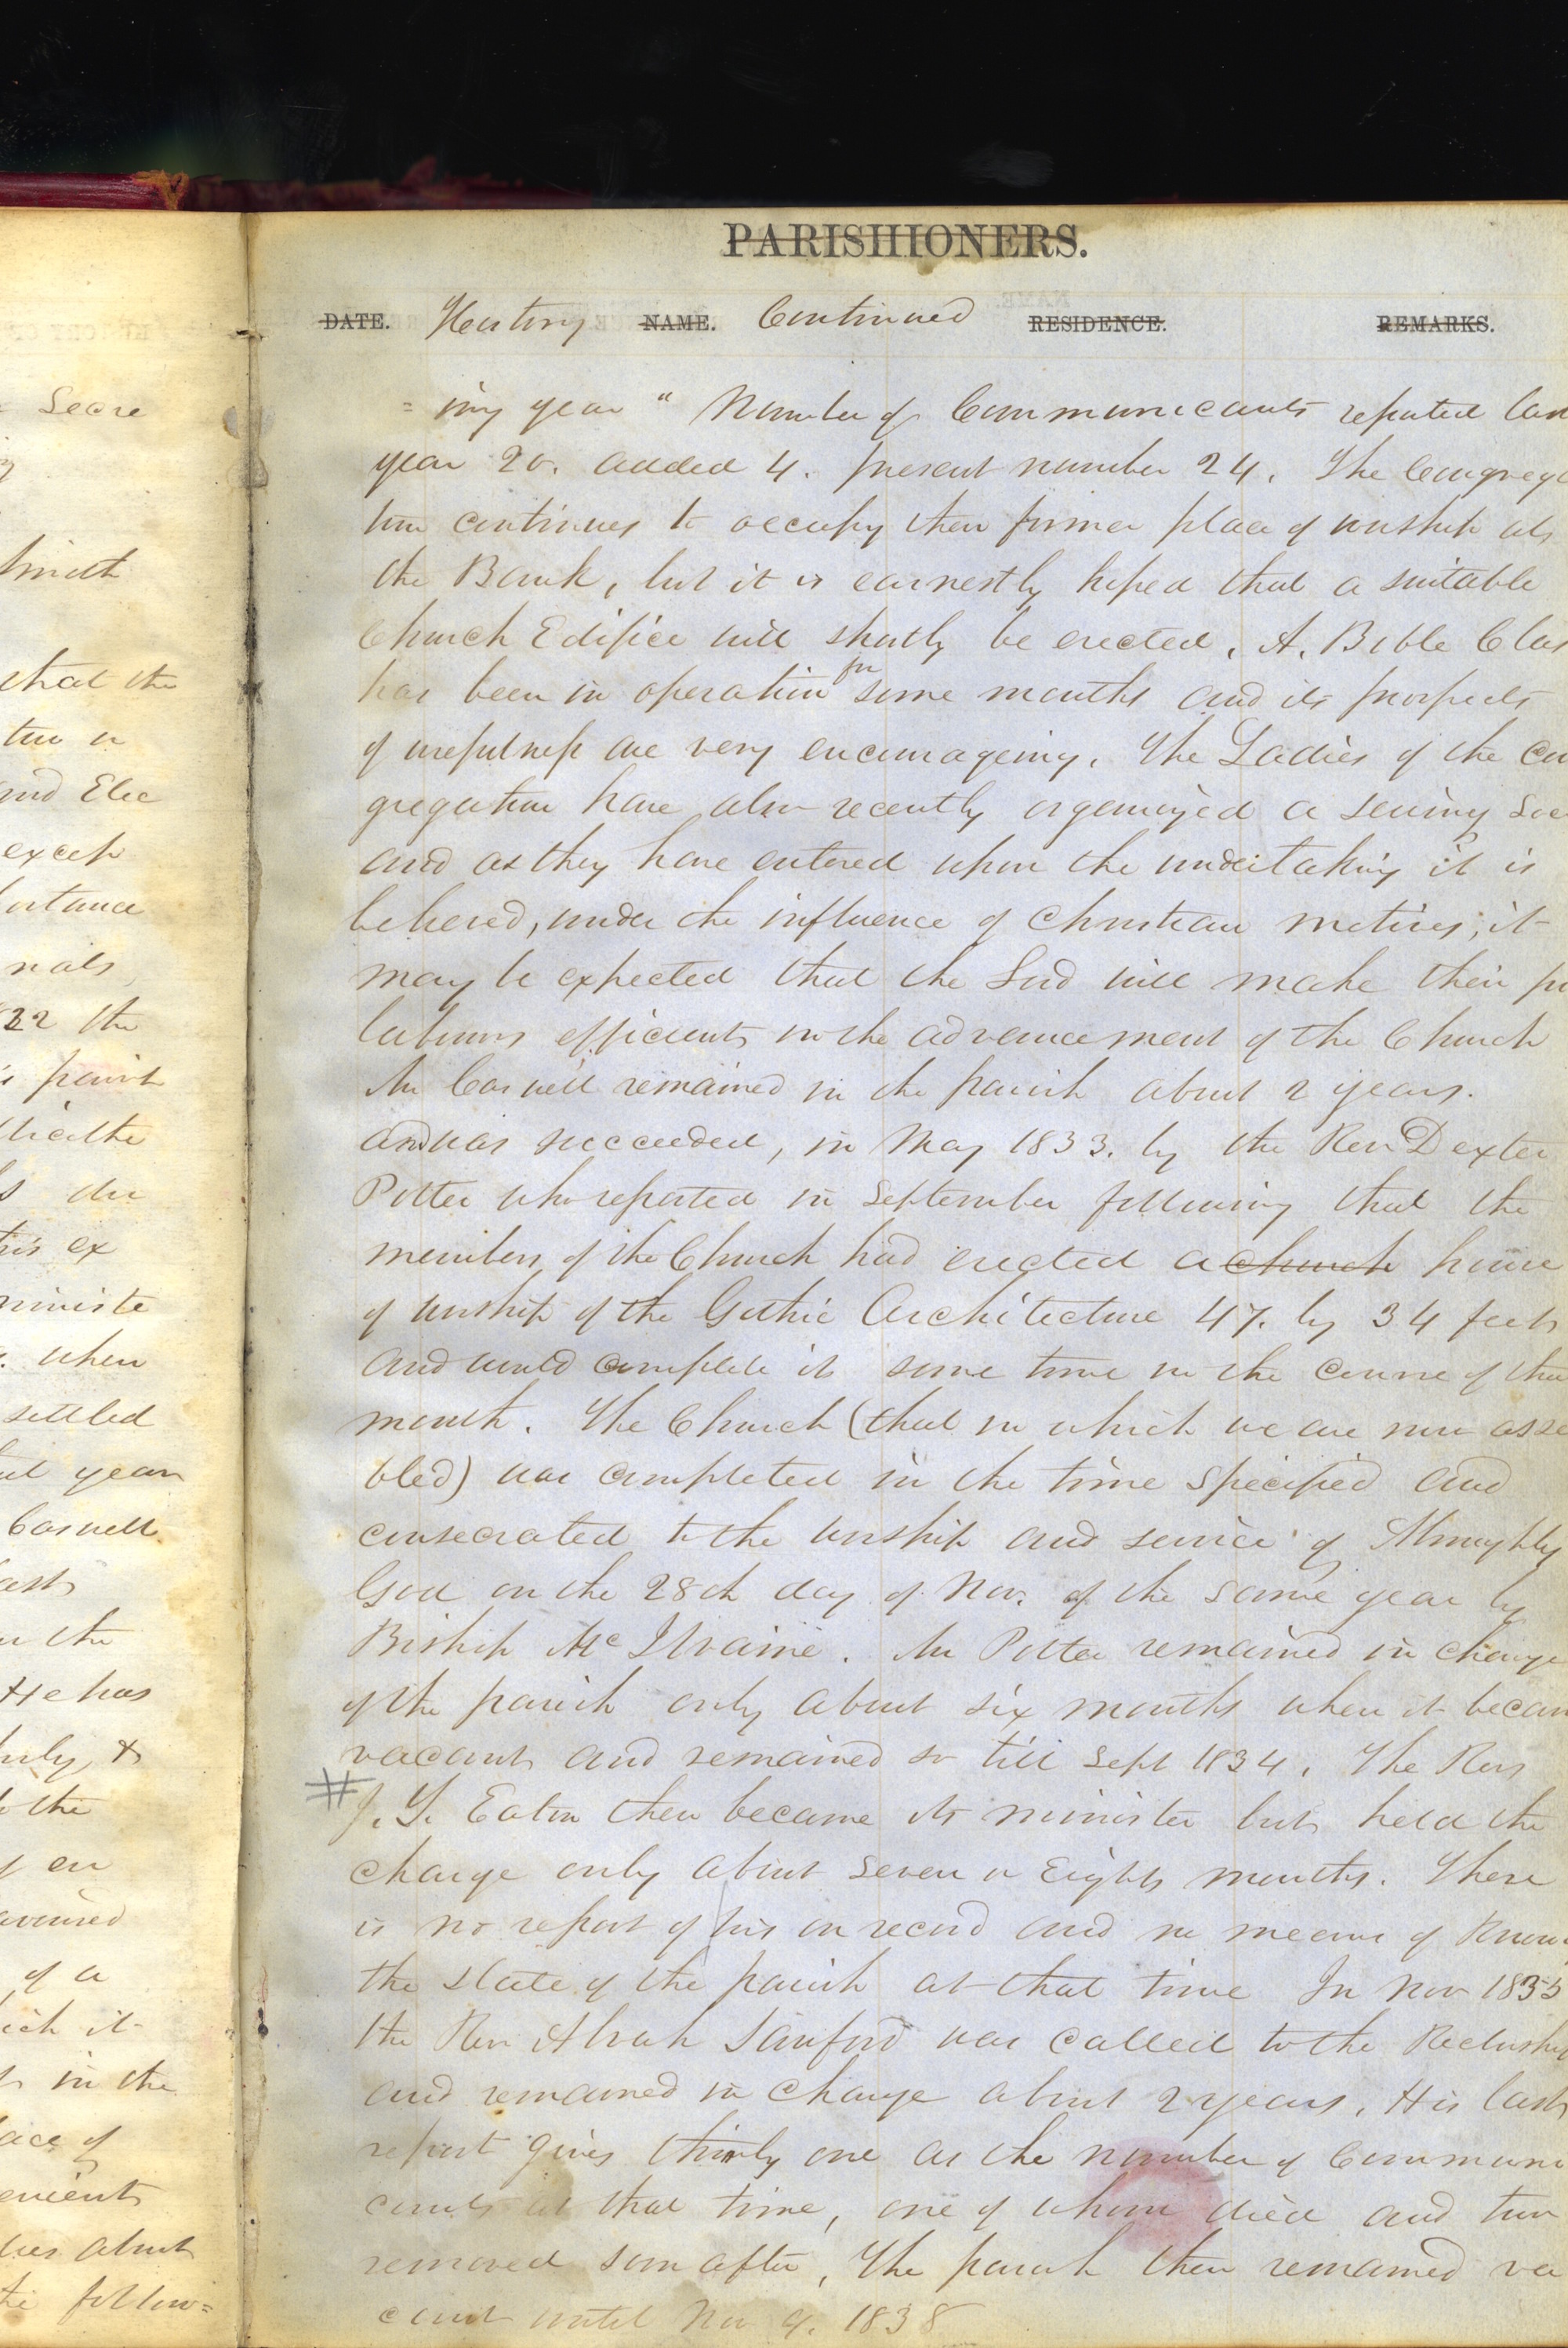 PARISHIONERS.
DATE. History NAME. Continued RESIDENCE. REMARKS.
= ing year " Number of Communicants reported las
year 20. added 4. present number 24. The Congrega
tion continues to occupy their former place of worship
the Bank, but it is earnestly hoped that a suitable
Church Edifice will shortly be erected. A. Bible Clas
has been in operation for some months and its prospects
of usefulness are very encourageing. The Ladies of the Con
gregation have also recently organized a sewing Soc
and as they have entered upon the undertaking it is
believed, under the influence of Christian motives, it
may be expected that the Lord will make their
labours efficient in the advancement of the Church
Mr Caswell remained in the parish about 2 years.
and was succeeded, in May 1833. by the Rev Dexter
Potter who reported in September following that the
members of the Church had erected a church house
of worship of the Gothic Architecture 47. by 34 feet
and would complete it some time in the course of the
month. The Church (that in which we are now asse
bled) was completed in the time specified and
consecrated to the worship and service of Almighty
God on the 28th day of Nov. of the same year by
Bishop McIlvaine. Mr Potter remained in charge
of the parish only about six months when it becam
vacant and remained so till Sept 1834. The Rev
# J. Y. Eaton then became its minister but held the
charge only about seven or Eight months. There
is no report of his on record and no means of know
the state of the parish at that time In Nov 1835
the Rev Alvah Sanford was called to the Rectorship
and remained in charge about 2 years. His last
report gives thirty one as the number of Communi
cants at that time, one of whom died and two
removed soon after, The parish then remained va
cant until Nov 9. 1838
Secre
Smith
that the
tion is
and Elec
excep
portance
nals
22 the
parish
this ex
ministe
when
settled
year
Caswell
last
in the
He has
July, &
to the
of a
which it
in the
lace of
about
the follow=